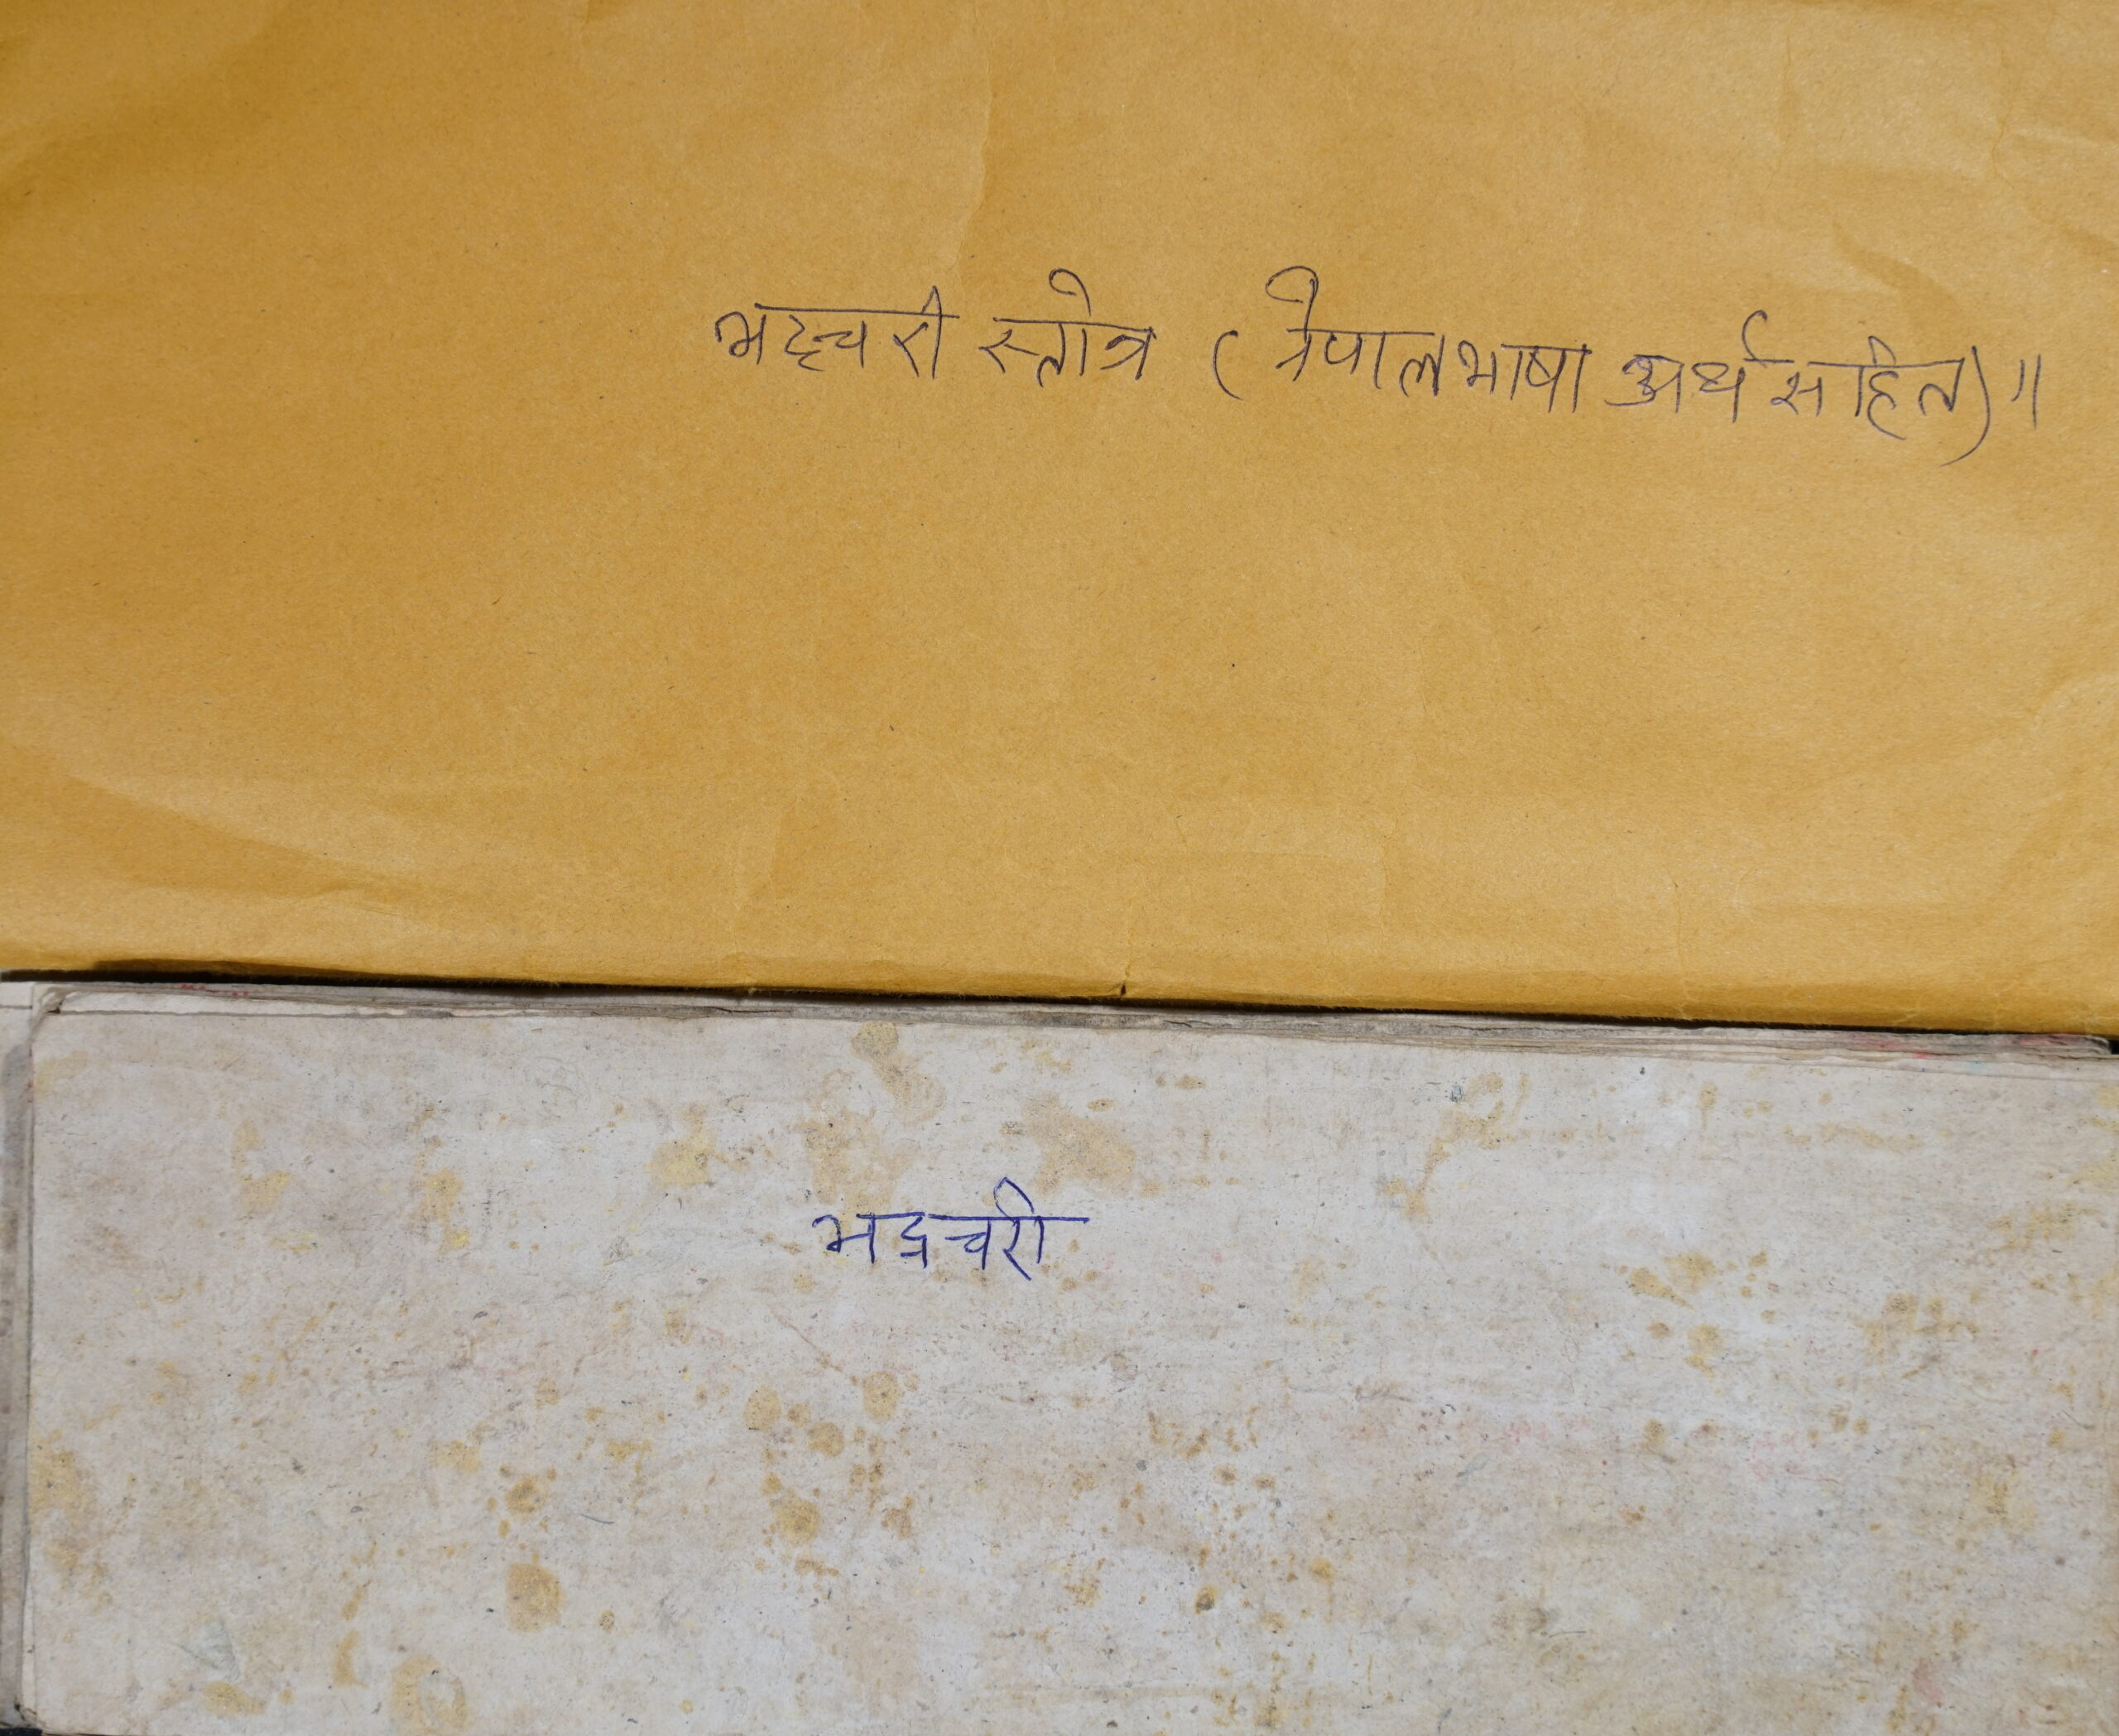 भद्रचरी स्तोत्र (नेपालभाषा अर्थ सहित)॥
भद्रचरी